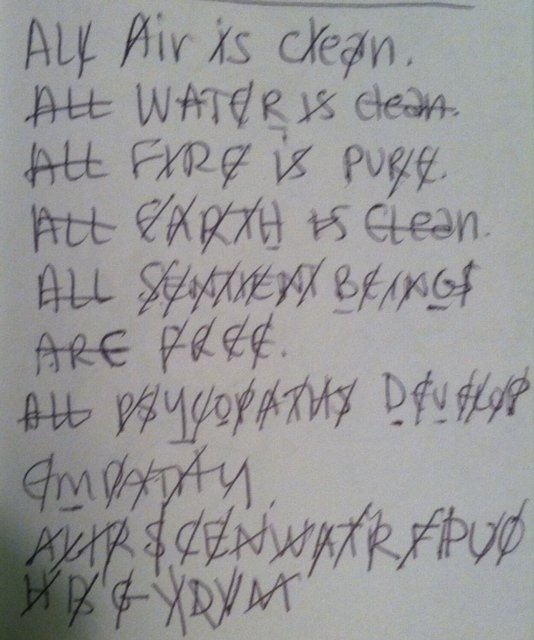 ALL Air is clean.
ALL WATER is clean.
ALL FIRE is PURE.
ALL EARTH is Clean.
ALL SENTIENT BEINGS
ARE FREE.
ALL PSYCOPATHS DEVELOP
EMPATHY
ALIRSCENWATRFPUO
HBGYDVM